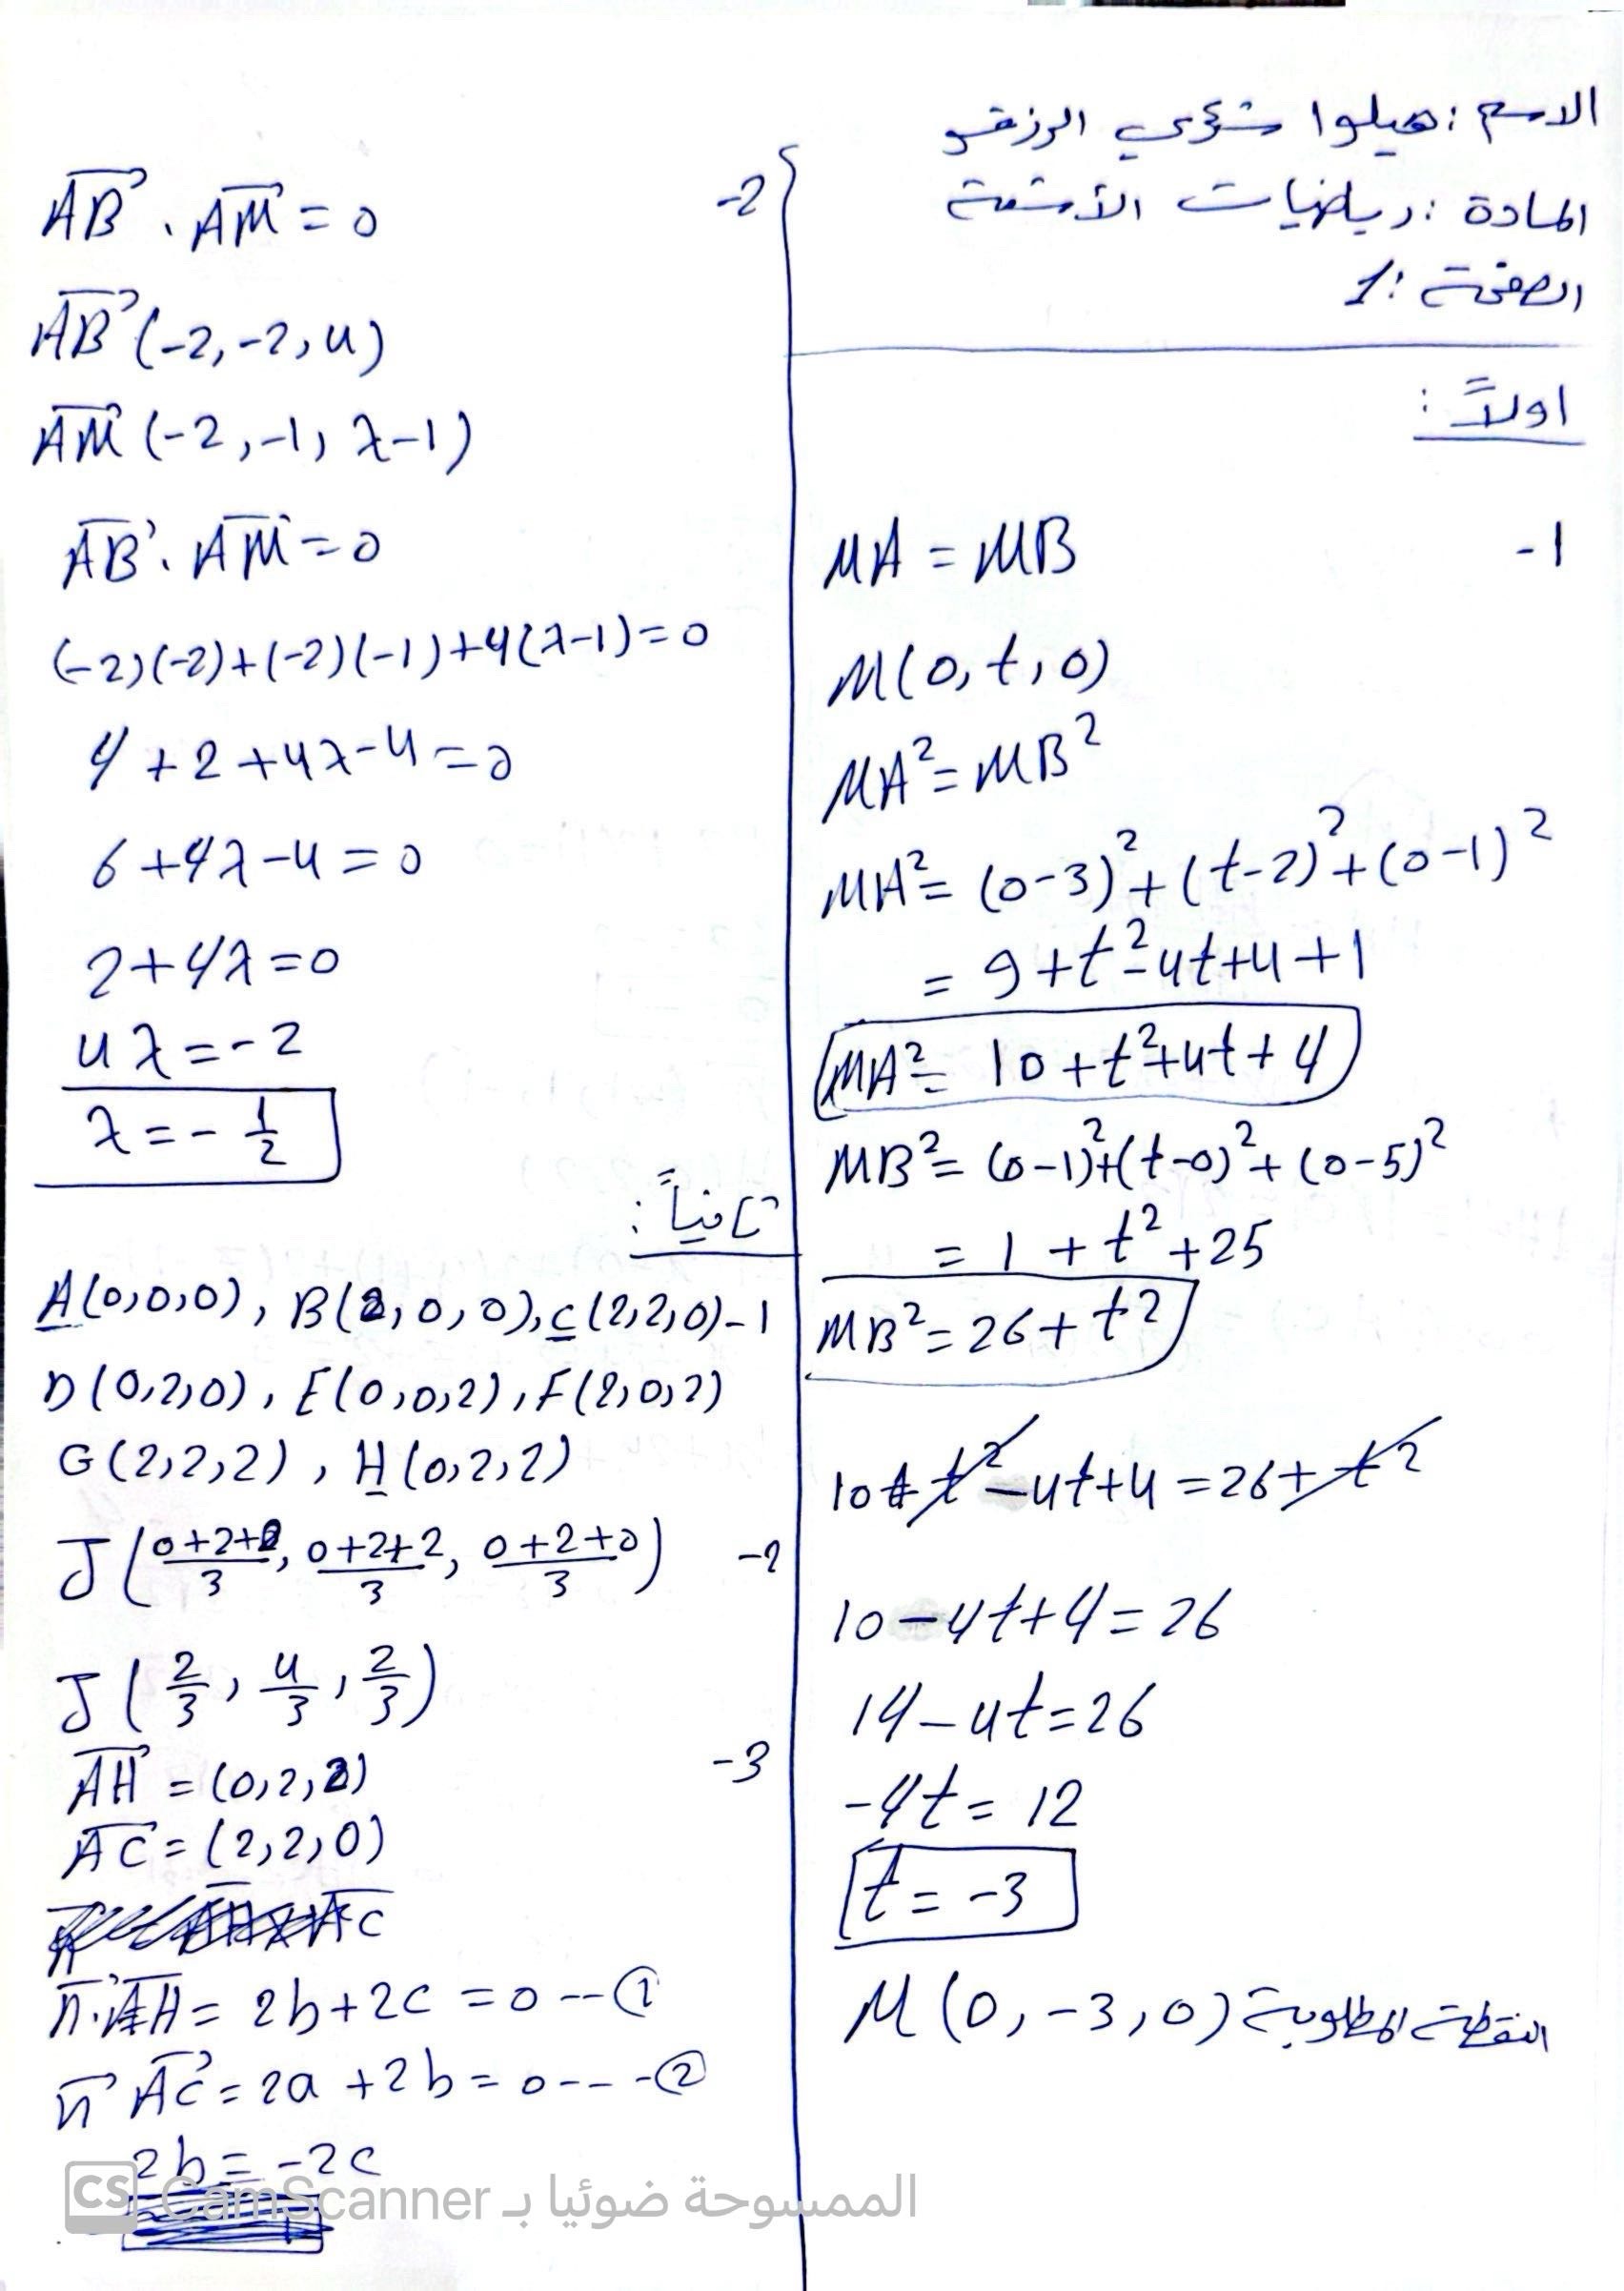 الاسم : هيلوا شوقي الرزقو
المادة : رياضيات الأتمتة
الصفحة : 1
اولاً :
-1
MA = MB
M(0, t, 0)
MA² = MB²
MA² = (0-3)² + (t-2)² + (0-1)²
= 9 + t² - 4t + 4 + 1
MA² = 10 + t² + 4t + 4
MB² = (0-1)² + (t-0)² + (0-5)²
= 1 + t² + 25
MB² = 26 + t²
10 + t² - 4t + 4 = 26 + t²
10 - 4t + 4 = 26
14 - 4t = 26
-4t = 12
t = -3
M (0, -3, 0) النقطة المطلوبة
-2
AB . AM = 0
AB (-2, -2, 4)
AM (-2, -1, λ-1)
AB . AM = 0
(-2)(-2) + (-2)(-1) + 4(λ-1) = 0
4 + 2 + 4λ - 4 = 0
6 + 4λ - 4 = 0
2 + 4λ = 0
4λ = -2
λ = - 1/2
ثانياً :
A(0,0,0), B(2,0,0), C(2,2,0) -1
D(0,2,0), E(0,0,2), F(2,0,2)
G(2,2,2), H(0,2,2)
J((0+2+0)/3, (0+2+2)/3, (0+2+0)/3) -2
J(2/3, 4/3, 2/3)
AH = (0,2,2) -3
AC = (2,2,0)
n . AH = 2b + 2c = 0 -- ①
n AC = 2a + 2b = 0 --- ②
2b = -2c
CS CamScanner الممسوحة ضوئيا بـ